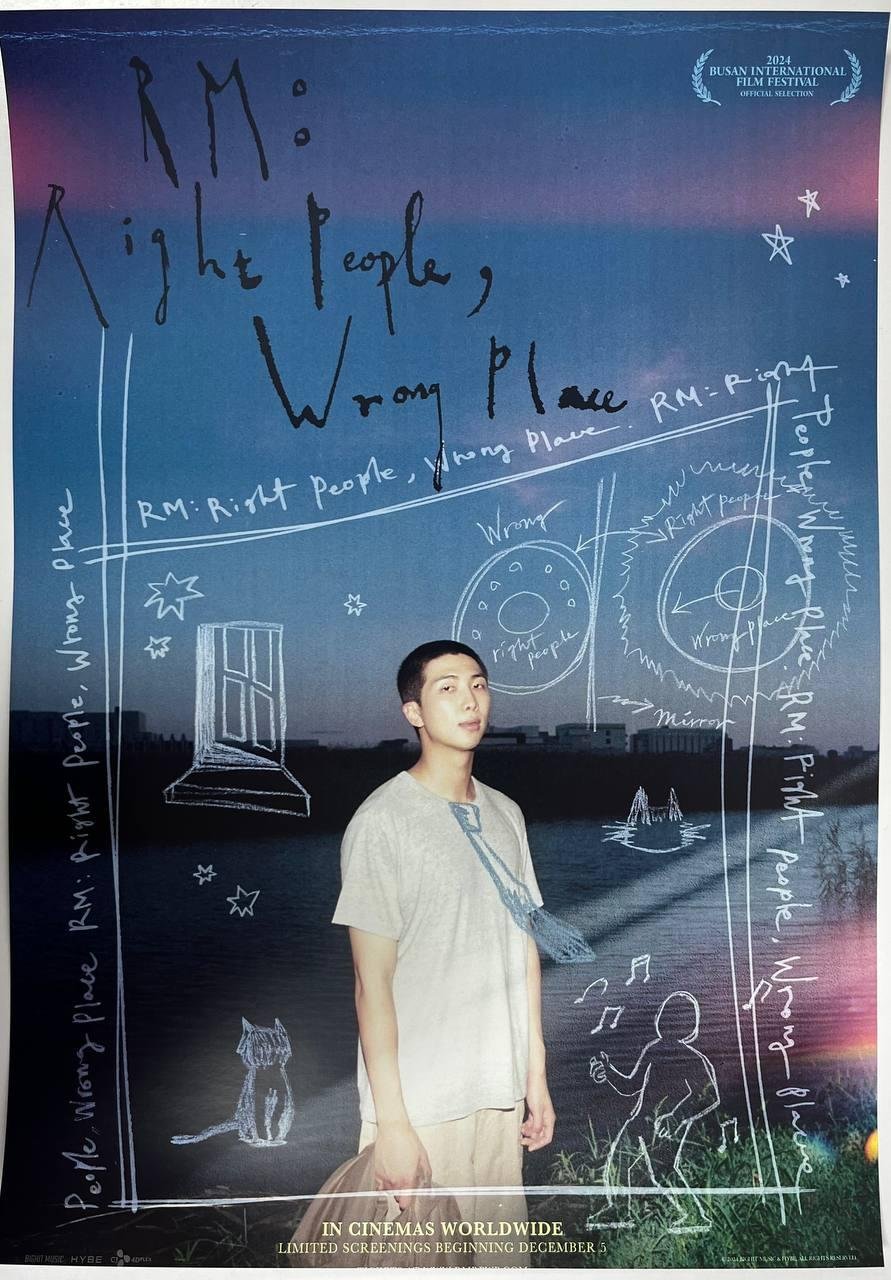 RM:
Right People,
Wrong Place
2024
BUSAN INTERNATIONAL
FILM FESTIVAL
OFFICIAL SELECTION
RM: Right People, Wrong Place. RM: Right
People, Wrong Place. RM: Right People, Wrong Place
People, Wrong Place RM: Right People, Wrong Place
Wrong
right
people
Right people
Wrong place
Mirror
IN CINEMAS WORLDWIDE
LIMITED SCREENINGS BEGINNING DECEMBER 5
BIGHIT MUSIC HYBE CJ 4DPLEX
© 2024 BIGHIT MUSIC & HYBE. ALL RIGHTS RESERVED.